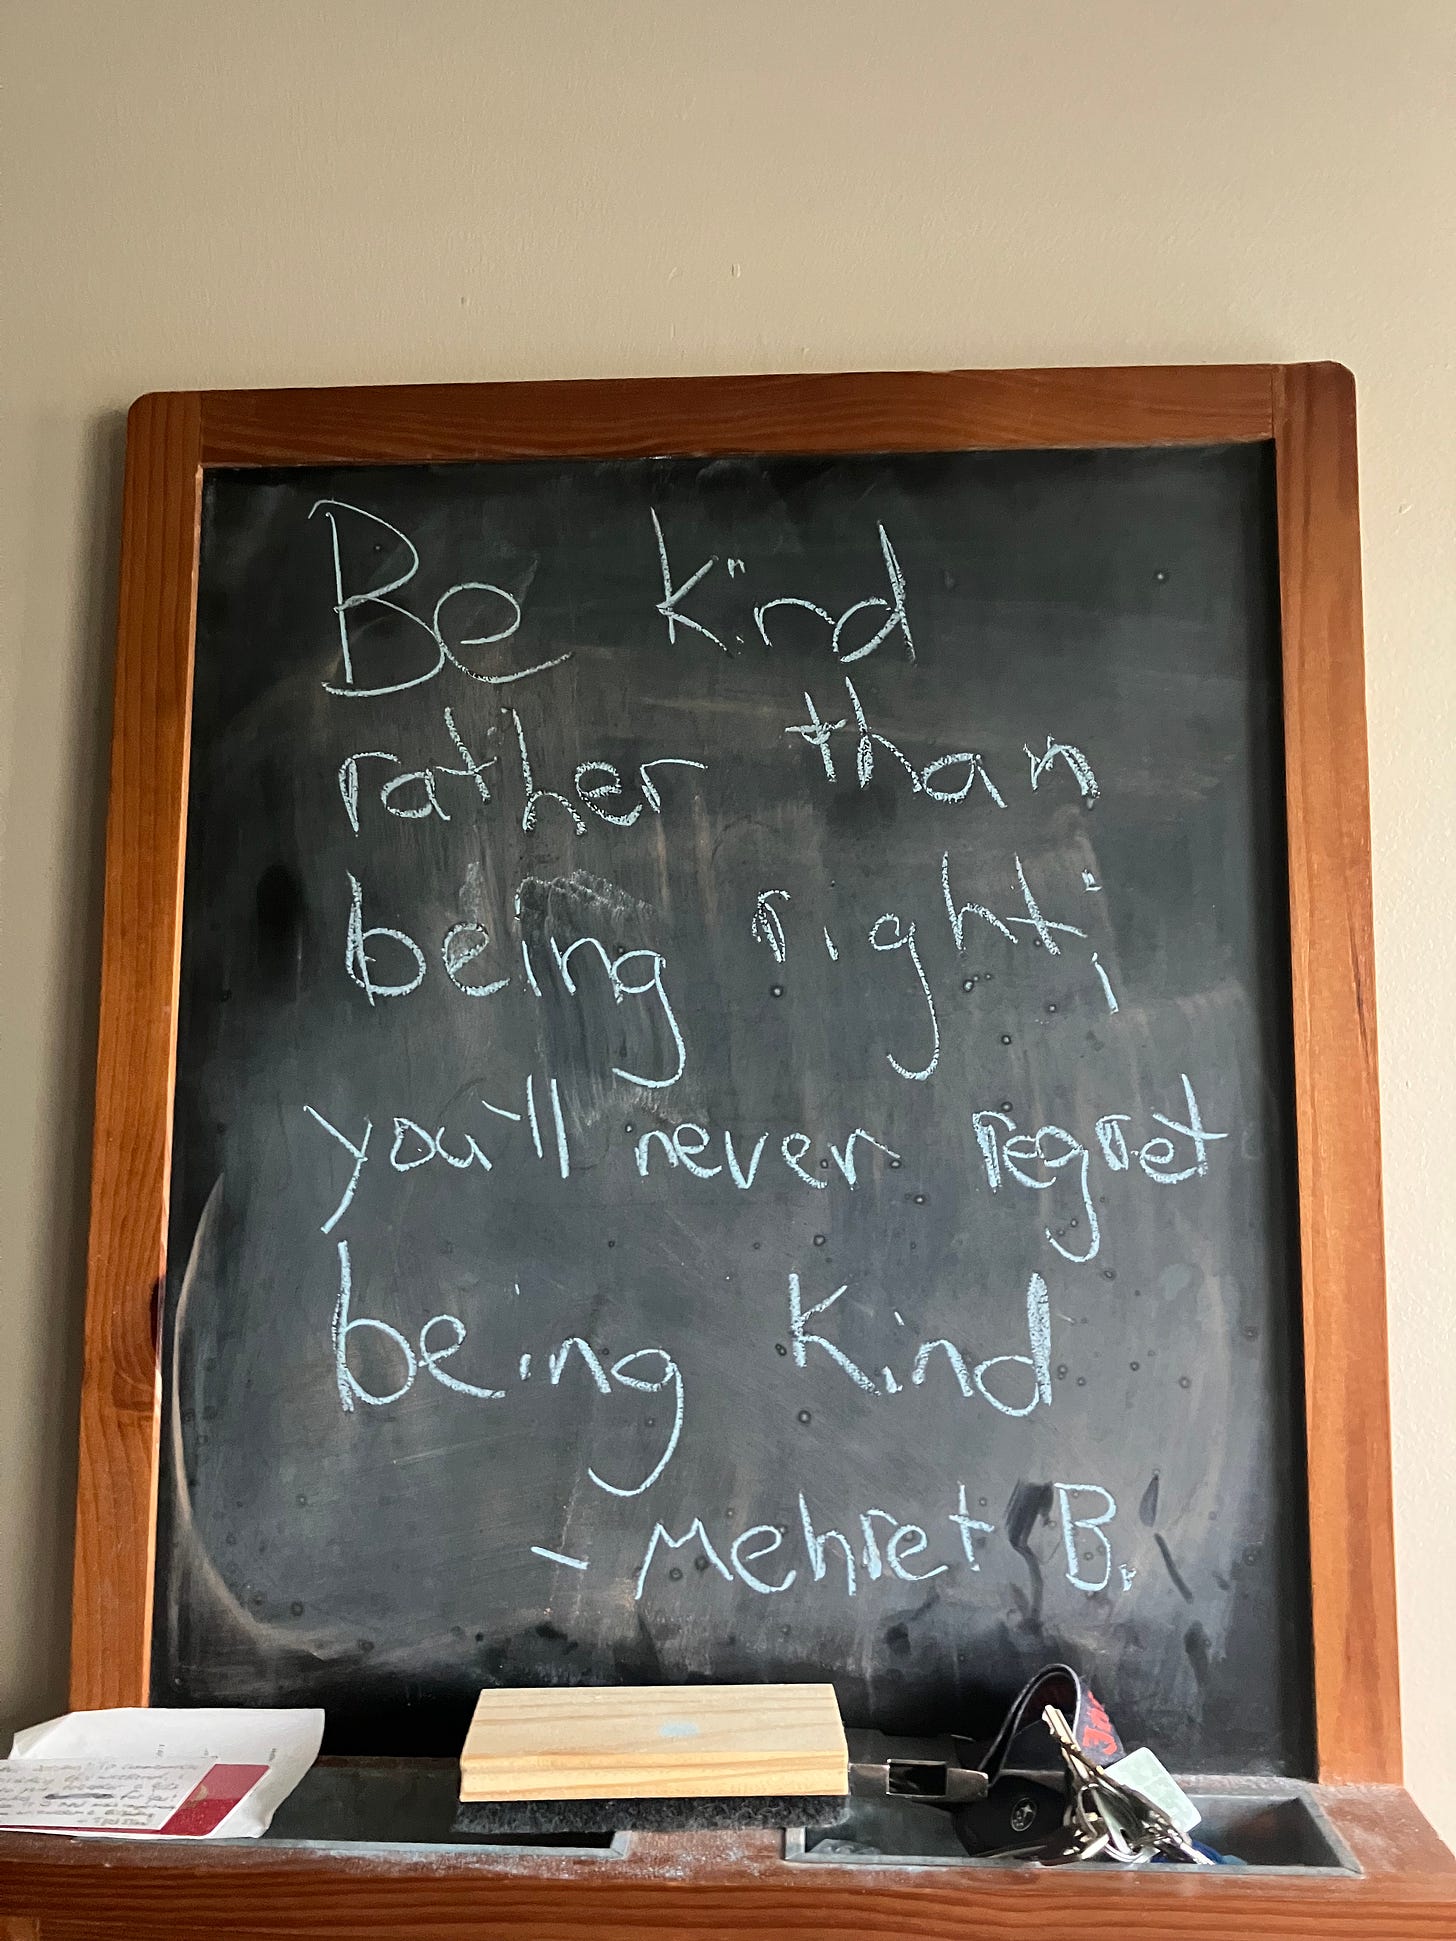 Be kind
rather than
being right;
you'll never regret
being kind
- Mehret B.